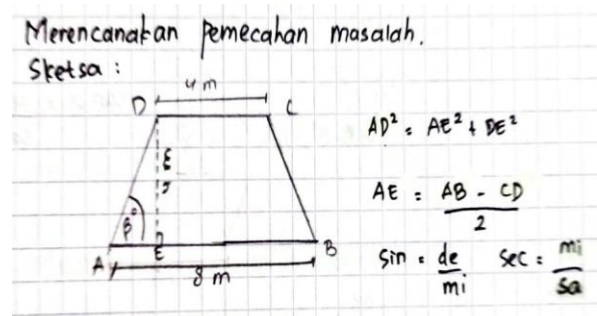 Merencanakan Pemecahan masalah.
Sketsa :
4 m
D
C
AD² = AE² + DE²
AE = AB - CD
2
β°
A
E
B
8 m
Sin = de
mi
Sec = mi
sa